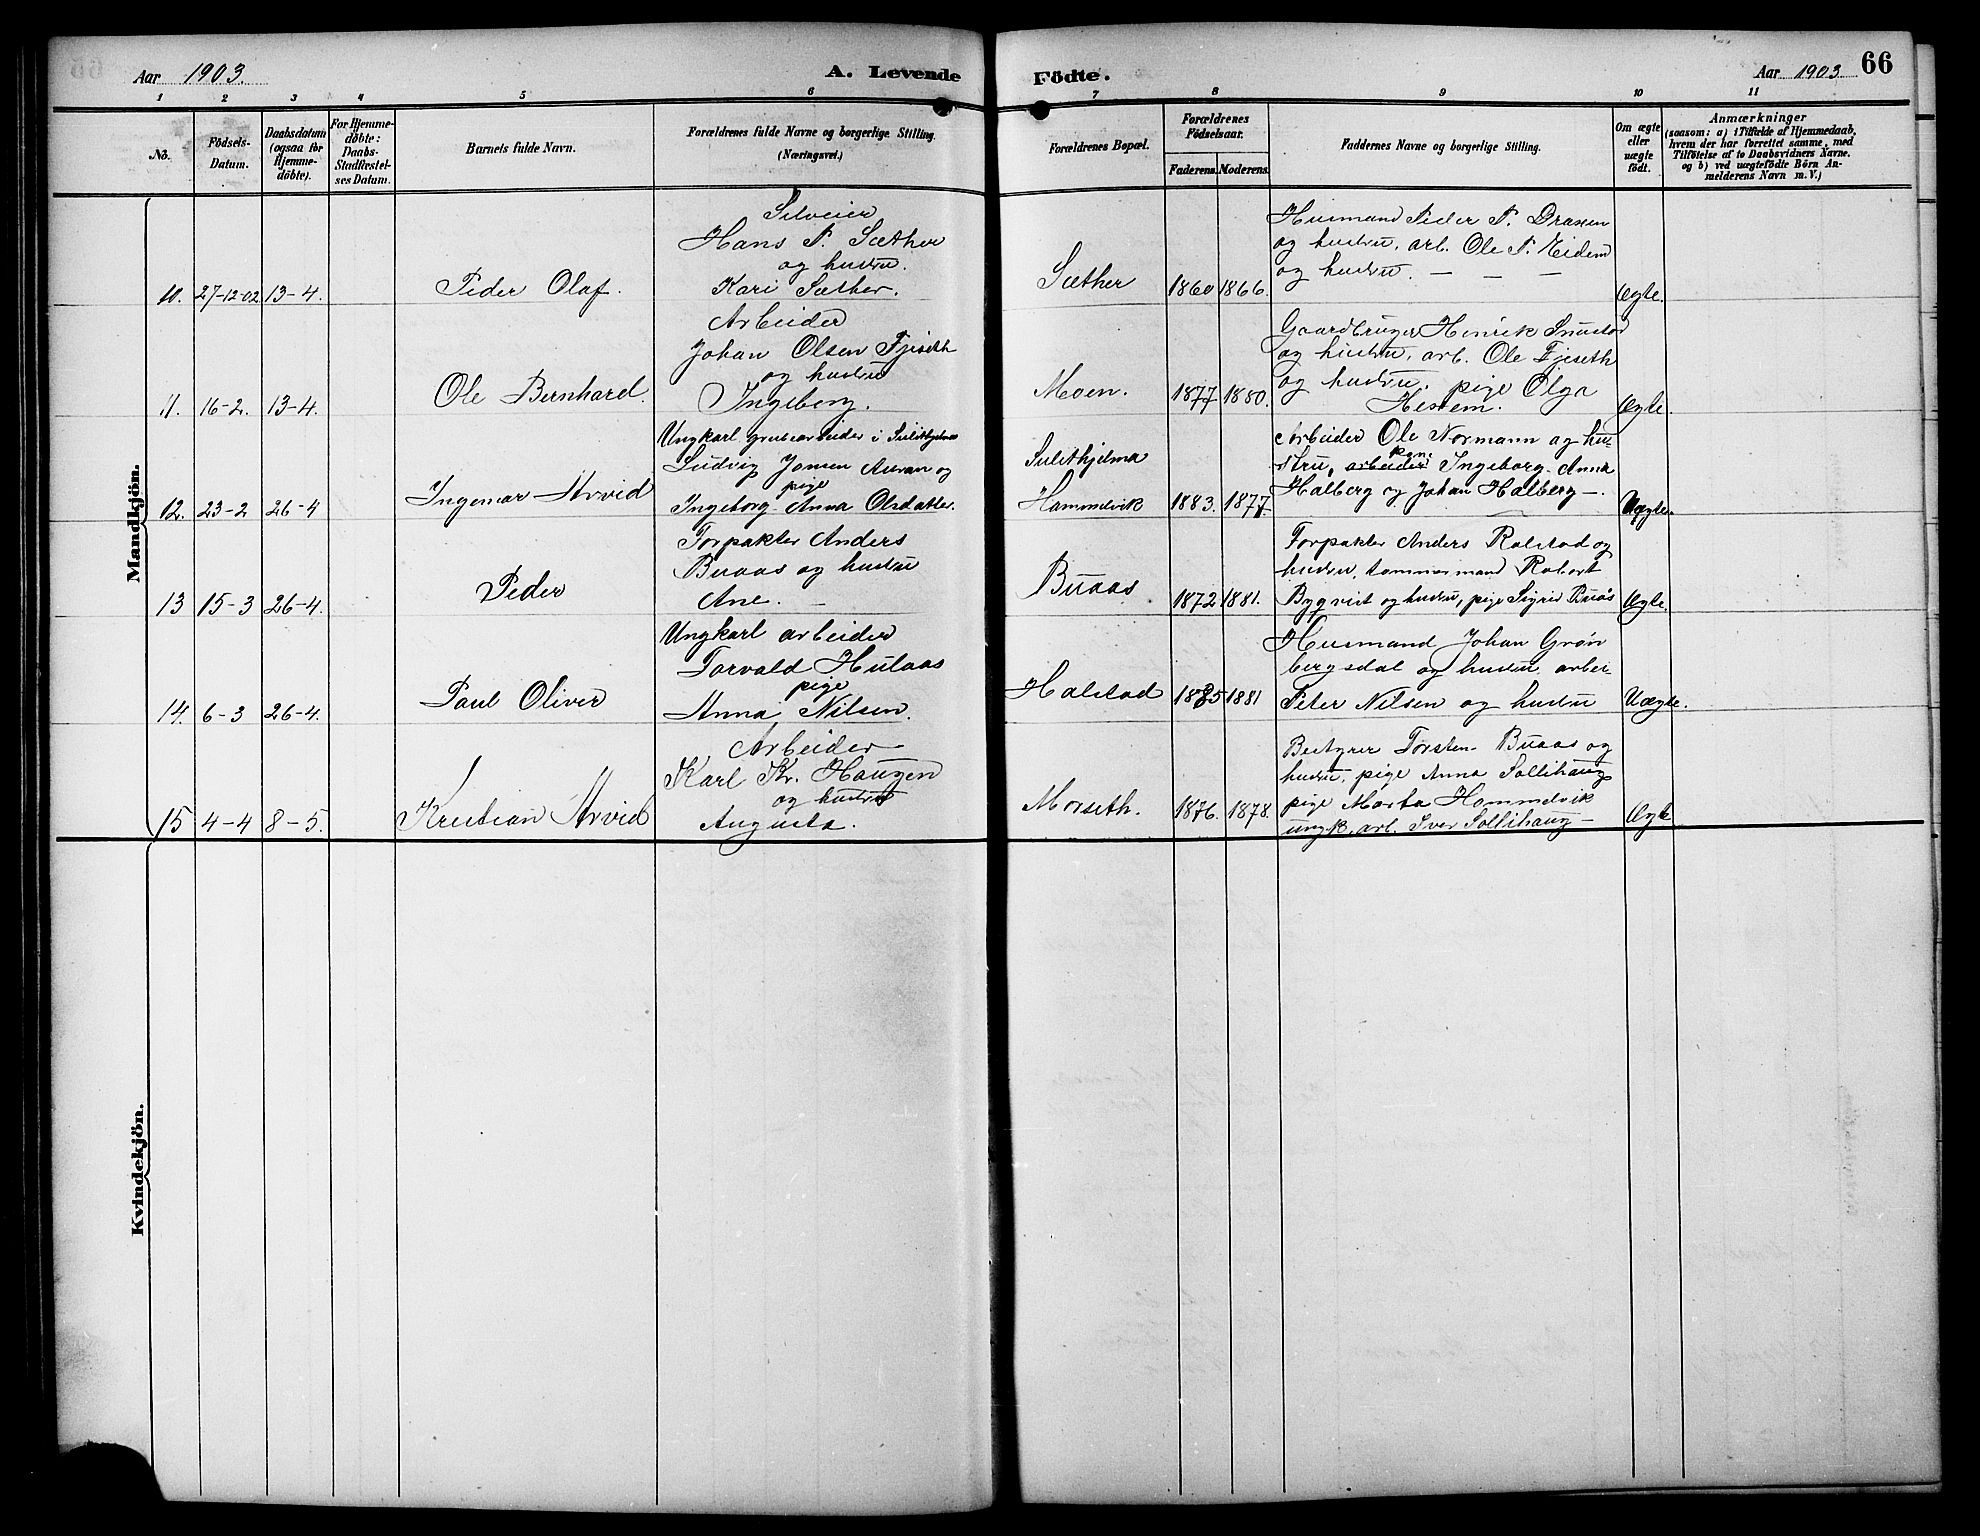 Aar 1903.
A. Levende Födte.
Aar 1903.
66
1 2 3 4 5 6 7 8 9 10 11
No.
Födsels-Datum.
Daabsdatum (ogsaa for Hjemme-döbte).
For Hjemme-döbte: Daabs-Stadfæstel-ses Datum.
Barnets fulde Navn.
Forældrenes fulde Navne og borgerlige Stilling. (Næringsvei.)
Forældrenes Bopæl.
Forældrenes Födselsaar.
Faderens. Moderens.
Faddernes Navne og borgerlige Stilling.
Om ægte eller uægte födt.
Anmærkninger
(saasom: a) i Tilfælde af Hjemmedaab,
hvem der har forrettet samme, med
Tilföielse af to Daabsvidners Navne,
og b) ved uægtefödte Börn An-
melderens Navn m. V.)
Mandkjön.
10. 27-12-02 13-4. Peder Olaf.
Selveier
Hans P. Sæther
og hustru.
Kari Sæther.
Sæther 1860 1866.
Husmand Peder P. Draxen
og hustru, arb. Ole P. Eidem
og hustru. — — —
Ægte.
11. 16-2. 13-4. Ole Bernhard.
Arbeider
Johan Olsen Fjeseth
og hustru
Ingeborg.
Moen. 1877 1880.
Gaardbruger Henrik
og hustru, arb. Ole Fjeseth
og hustru, pige Olga
Hestem.
Ægte.
12. 23-2 26-4 Ingemar Arvid
Ungkarl grubearbeider i Sulithjelma
Ludvig Jonsen Auran og
pige
Ingeborg Anna Olsdatter.
Sulithjelma
Hammervik 1883. 1877.
Arbeider Ole Normann og hu-
stru, arbeider Ingeborg Anna
Halberg og Johan Halberg —.
Uægte.
13 15-3 26-4. Peder
Forpakter Anders
Buaas og hustru
Ane. —
Buaas 1872 1881.
Forpakter Anders Ralstad og
hustru, tømmermand Robert
Bygqvist og hustru, pige Sigrid Buås
Ægte.
14. 6-3 26-4. Paul Oliver
Ungkarl arbeider
Torvald Hulaas
pige
Anna Nilsen.
Halstad 1885 1881
Husmand Johan Grøn
bergsdal og hustru, arber-
Peter Nilsen og hustru
Uægte.
15 4-4 8-5. Kristian Arvid
Arbeider
Karl Kr. Haugen
og hustru
Augusta.
Morseth. 1876. 1878.
Bestyrer Torsten Buaas og
hustru, pige Anna Sollihaug
pige Marta Hammervik
ungk. arb. Iver Sollihaug —
Ægte
Kvindekjön.